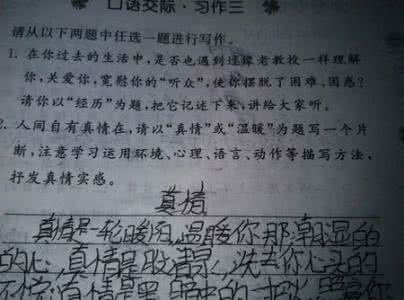 口语交际·习作三
请从以下两题中任选一题进行写作。
1. 在你过去的生活中,是否也遇到过像老教授一样理解
你,关爱你,宽慰你的“听众”,使你摆脱了困难、困惑?
请你以“经历”为题,把它记述下来,讲给大家听。
2. 人间自有真情在,请以“真情”或“温暖”为题写一个片
断,注意学习运用环境、心理、语言、动作等描写方法,
抒发真情实感。
真情
真情是一轮暖阳,温暖你那潮湿的
的心,真情是股清泉,洗去你心头的
真情是黑暗中的一把火